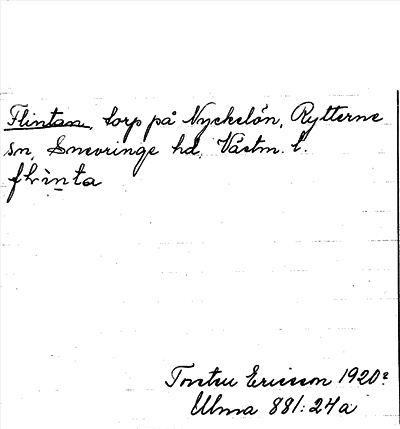 Flintan, torp på Nyckelön, Rytterne
sn, Snevringe hd, Västm. l.
flìnta
Torsten Ericsson 1920?
Ulma 881:24a